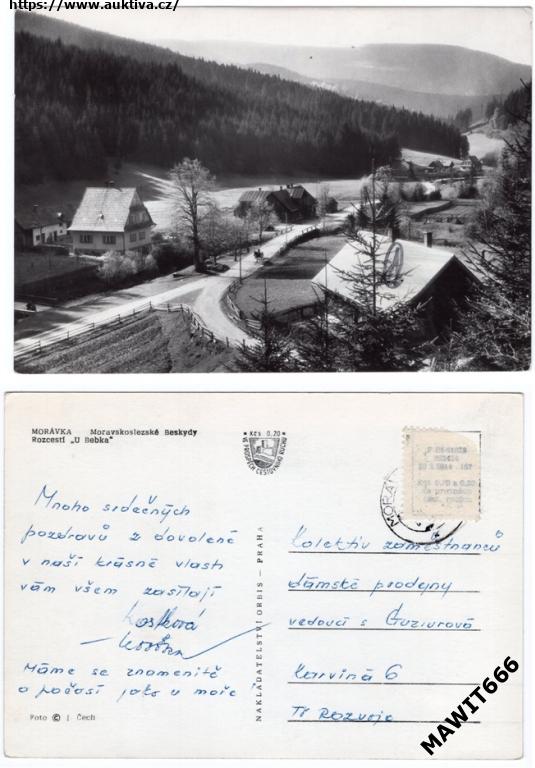 https://www.auktiva.cz/
MORÁVKA Moravskoslezské Beskydy
Rozcestí „U Bebka"
Kčs 0,20
VE PROSPĚCH CESTOVNÍHO RUCHU
MORÁV
Mnoho srdečných
pozdravů z dovolené
v naší krásné vlasti
vám všem zasílají
Kostková
Máme se znamenitě
a počasí jako u moře!
Foto © J. Čech
NAKLADATELSTVÍ ORBIS — PRAHA
Kolektiv zaměstnanců
dámské prodejny
vedoucí s Guziurová
Karviná 6
Tř Rozvoje
MAWIT666